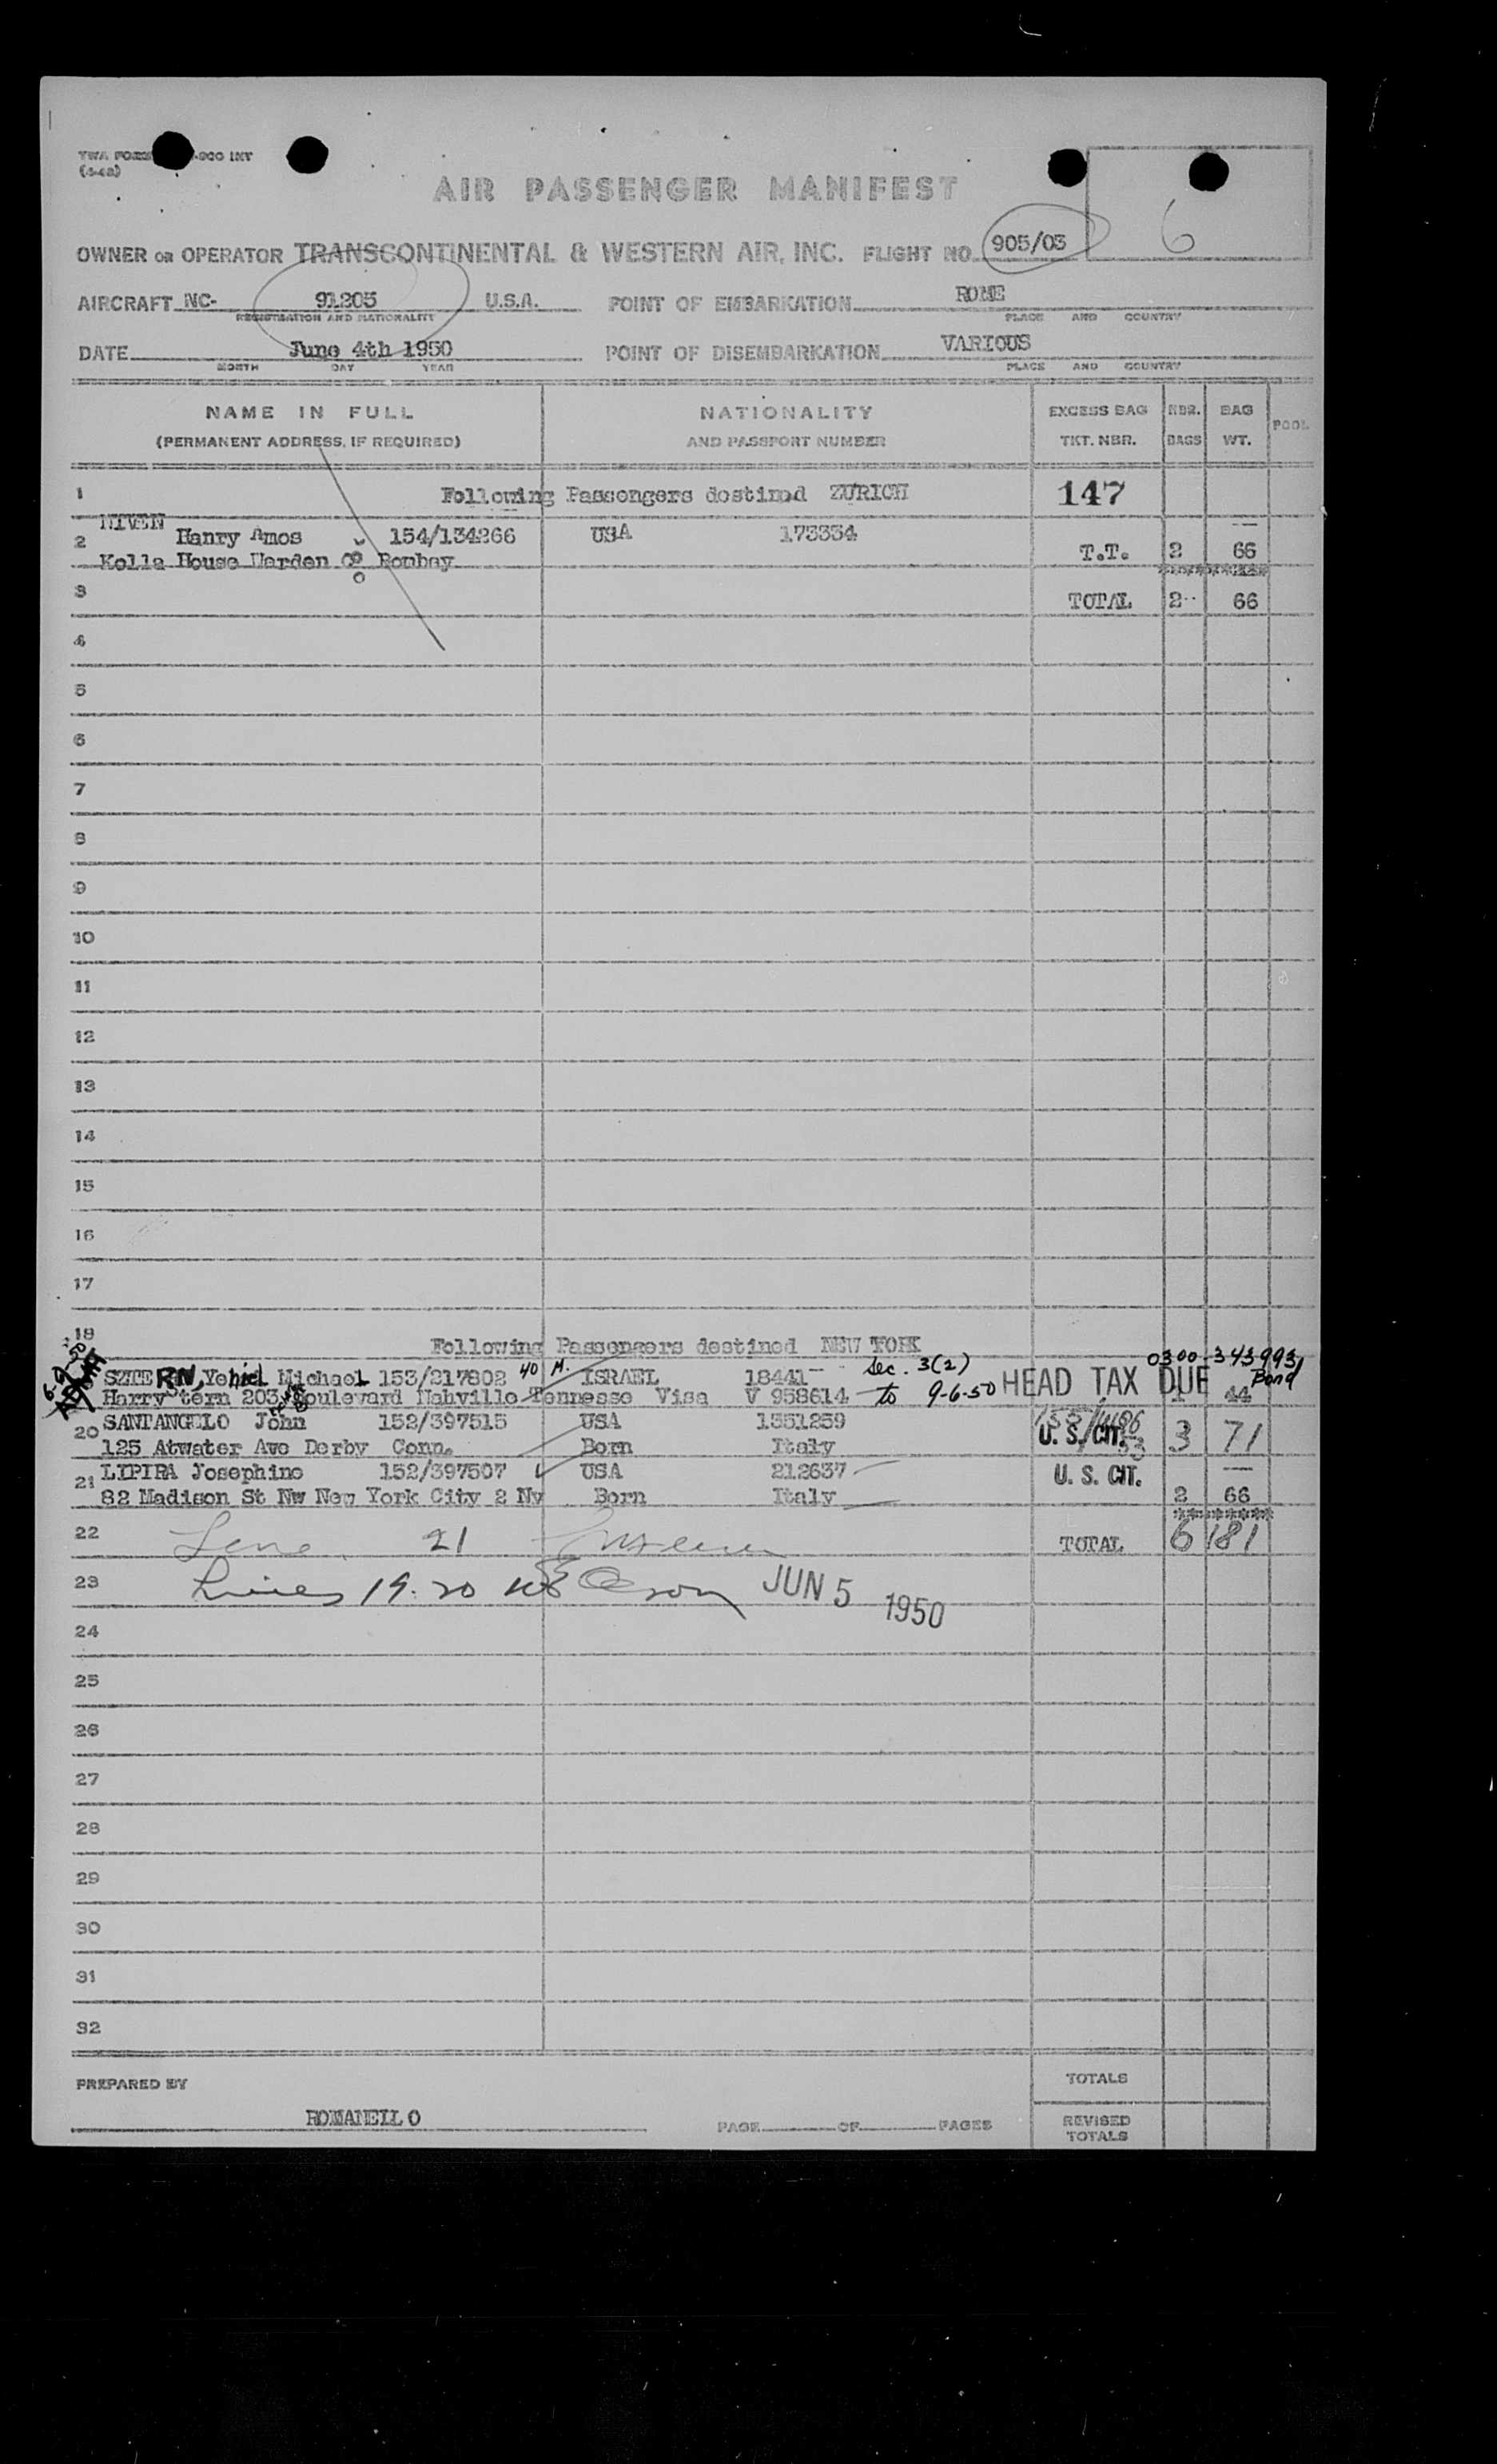 TWA FORM -900 INT
(4-48)
AIR PASSENGER MANIFEST
6
OWNER OR OPERATOR TRANSCONTINENTAL & WESTERN AIR, INC. FLIGHT NO. 905/03
AIRCRAFT NC- 91205 U.S.A. POINT OF EMBARKATION ROME
REGISTRATION AND NATIONALITY PLACE AND COUNTRY
DATE June 4th 1950 POINT OF DISEMBARKATION VARIOUS
MONTH DAY YEAR PLACE AND COUNTRY
NAME IN FULL NATIONALITY EXCESS BAG NBR. BAG POOL
(PERMANENT ADDRESS, IF REQUIRED) AND PASSPORT NUMBER TKT. NBR. BAGS WT.
1 Following Passengers destined ZURICH 147
NIVEN
2 Hanry Amos 154/134266 USA 173334
Kolla House Warden Bombay T.T. 2 66
3 TOTAL 2 66
4
5
6
7
8
9
10
11
12
13
14
15
16
17
18 Following Passengers destined NEW YORK
6-9-50 0300-343993
SZTERN, Yehiel Michael 153/217802 40 M. ISRAEL 18441 Sec. 3(2) HEAD TAX DUE Bond
Harry tern 203 Boulevard Nahville Tennesse Visa V 958614 to 9-6-50 1 44
20 SANTANGELO John 152/397515 USA 1351259 U. S. CIT. 3 71
125 Atwater Ave Derby Conn. Born Italy
21 LIPIRA Josephine 152/397507 USA 212637 U. S. CIT. —
82 Madison St Nw New York City 2 Ny Born Italy 2 66
22 Line 21 TOTAL 6 181
23 Lines 19-20 JUN 5 1950
24
25
26
27
28
29
30
31
32
PREPARED BY TOTALS
ROMANELLO PAGE OF PAGES REVISED
TOTALS